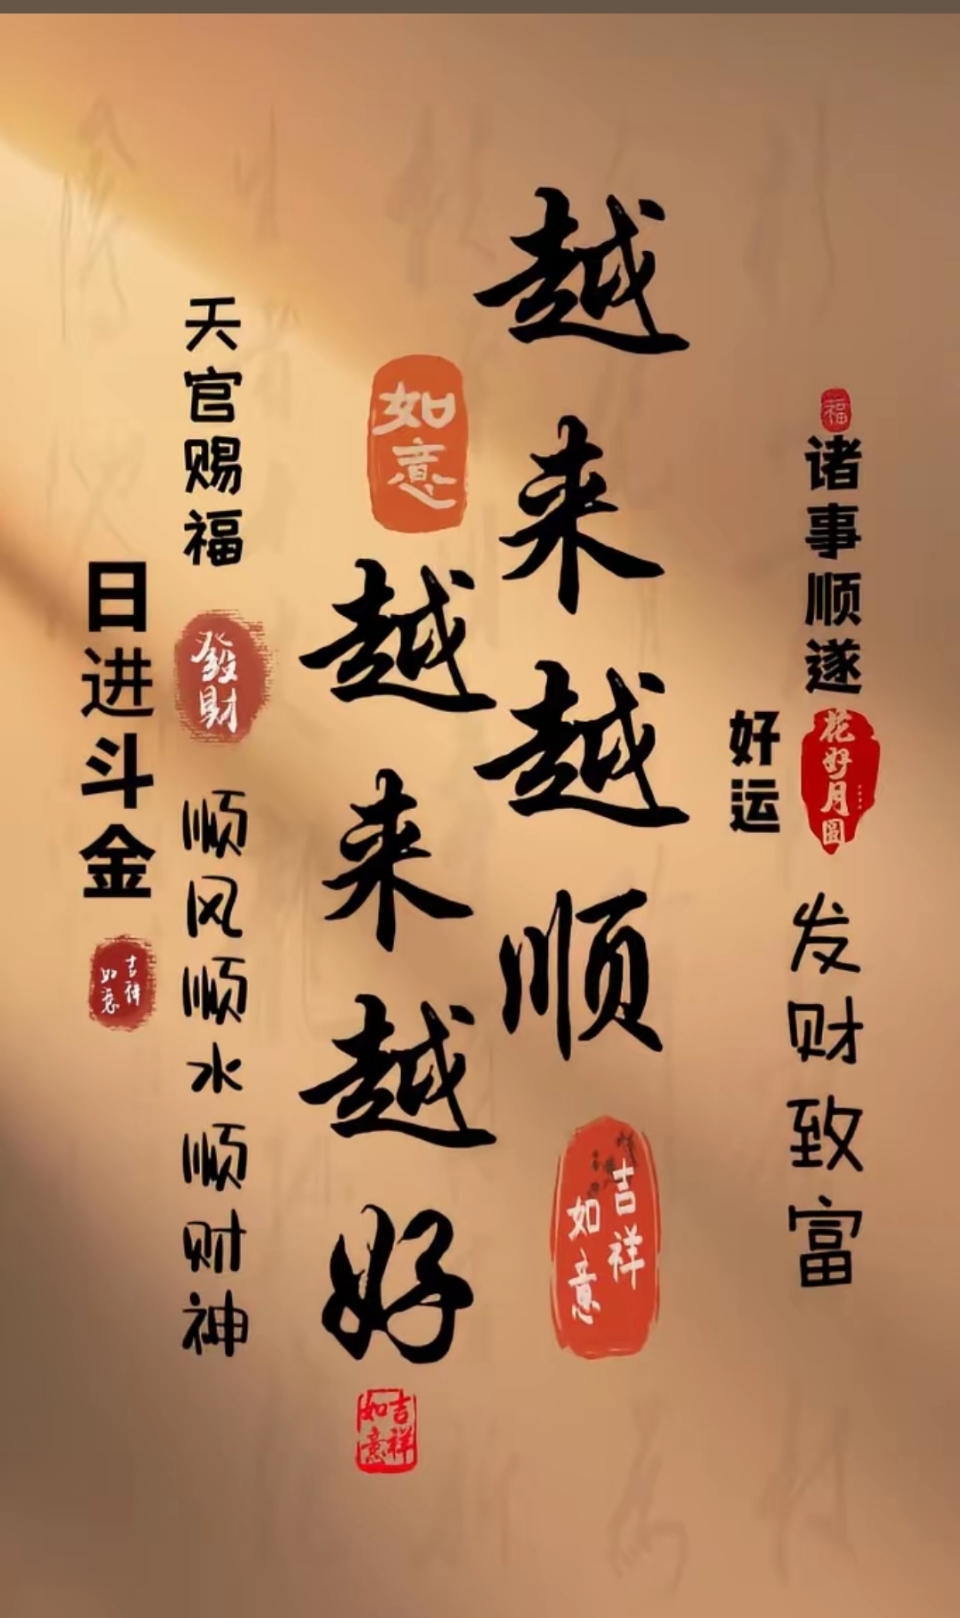 福
诸事顺遂
花好月圆
发财致富
好运
越来越顺
吉祥
如意
如意
越来越好
吉祥
如意
天官赐福
發財
顺风顺水顺财神
日进斗金
吉祥
如意